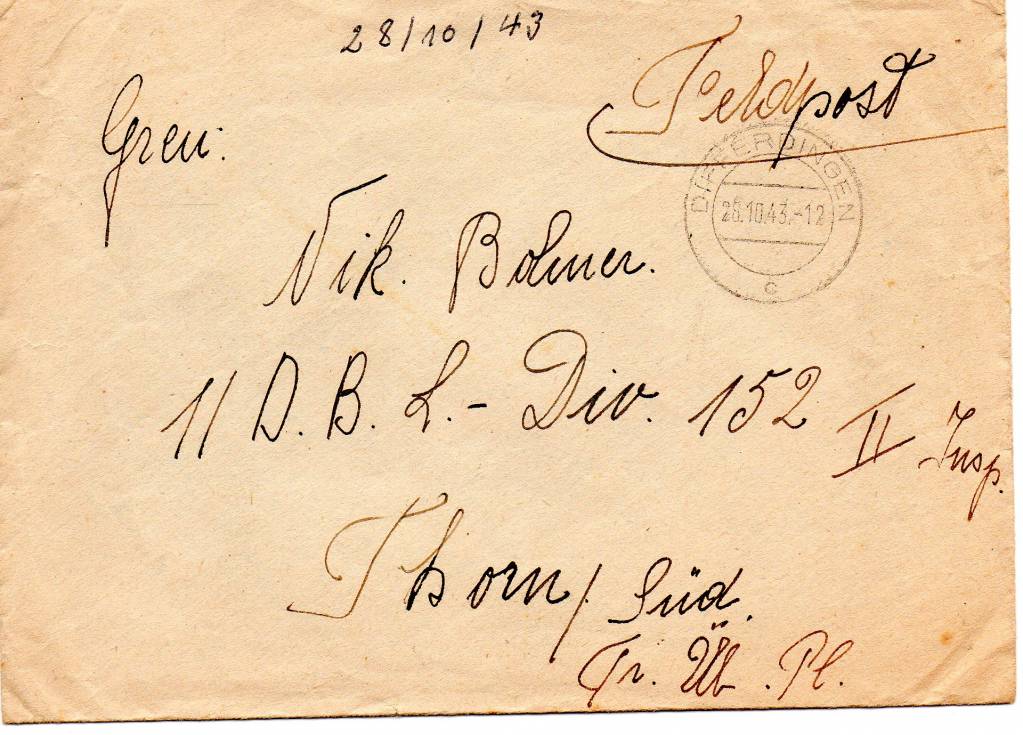 28/10/43
Feldpost
Gren.
DIFFERDINGEN
28.10.43.-12
c
Nik. Bolmer.
11 D. B. L.- Div. 152 II Insp.
Thorn / Süd.
Tr. Üb. Pl.